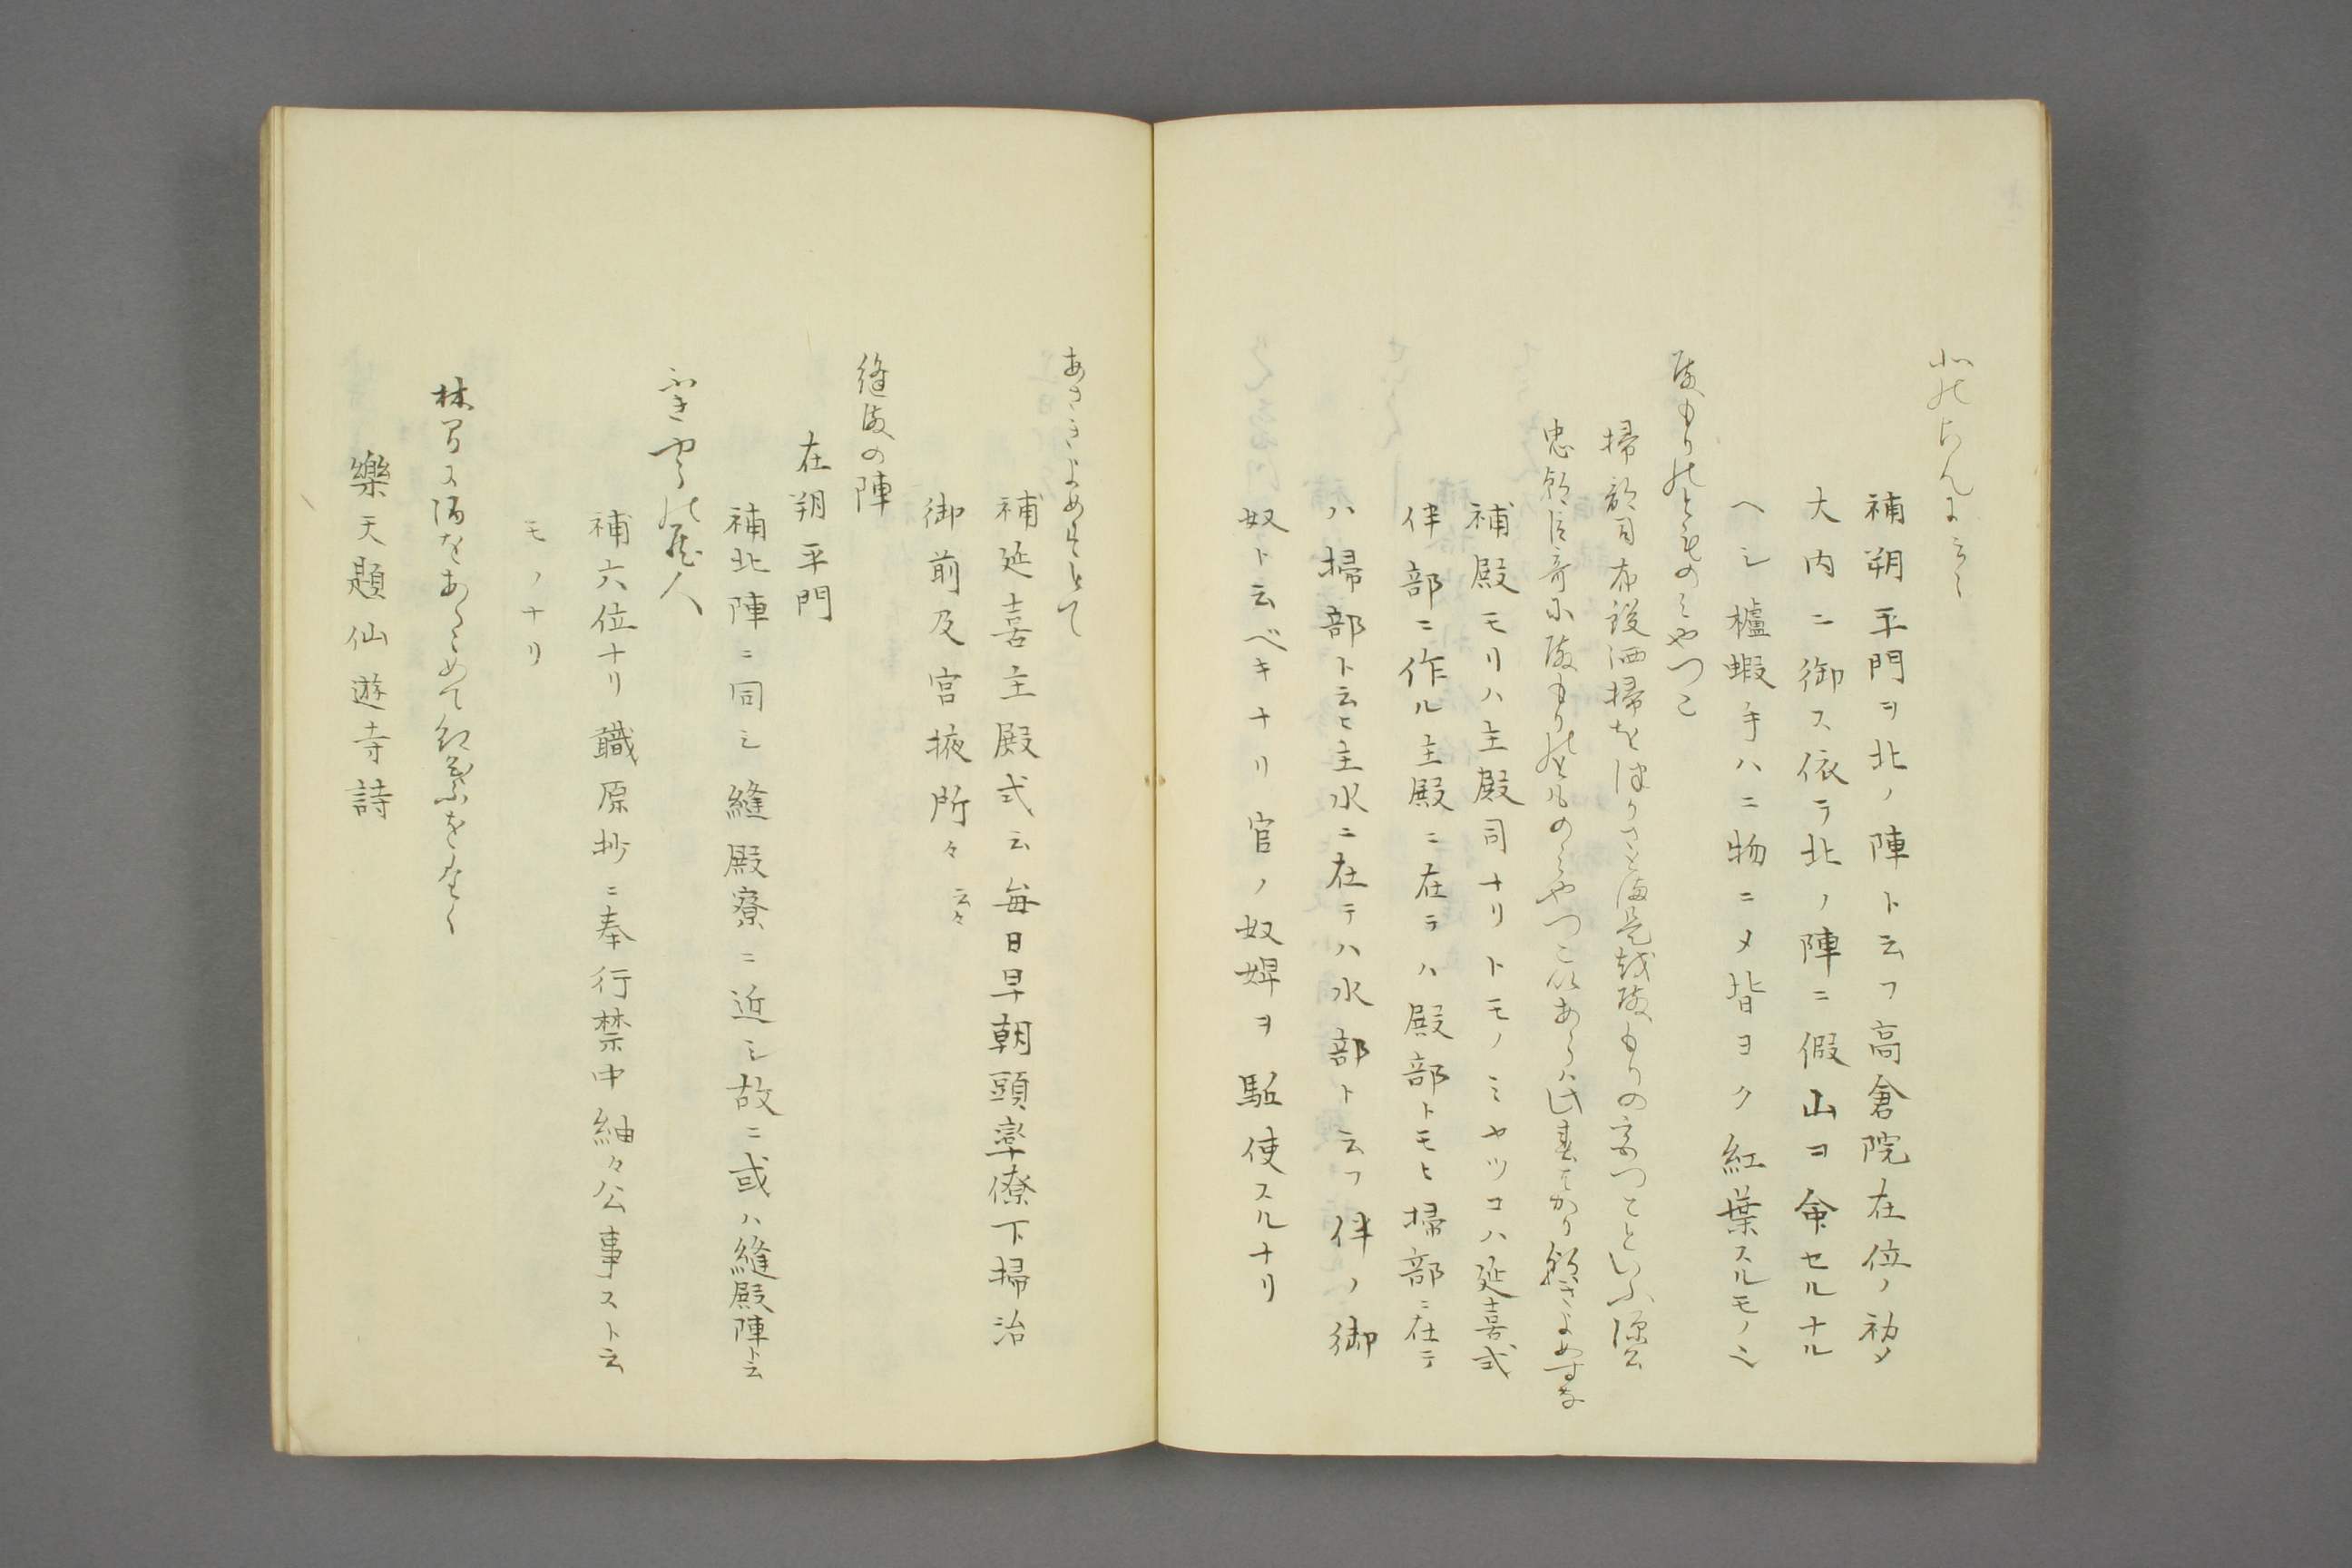 北のちんに云々
補朔平門ヲ北ノ陣ト云フ高倉院在位ノ初メ
大内ニ御ス依テ北ノ陣ニ假山ヲ命セルナル
ヘシ櫨蝦手ハニ物ニメ皆ヨク紅葉スルモノ也
殿もりのとものみやつこ
掃部司布設洒掃をはかさとる是故殿もりの
忠頼臣哥に殿もりのとものみやつこ心あらハ此春はかり朝きよめすな
補殿モリハ主殿司ナリトモノミヤツコハ延喜式
伴部ニ作ル主殿ニ在テハ殿部トモヒ掃部ニ在テ
ハ掃部ト云ヒ主水ニ在テハ水部ト云フ伴ノ御
奴ト云ベキナリ官ノ奴婢ヲ駈使スルナリ
あさきよめせんとて
補延喜主殿式云毎日早朝頭率僚下掃治
御前及宮掖所々云々
縫殿の陣
在朔平門
補北陣ニ同シ縫殿寮ニ近シ故ニ或ハ縫殿陣ト云
ふきやうの蔵人
補六位ナリ職原抄ニ奉行禁中細々公事スト云
モノナリ
林間に酒をあたゝめて紅葉をたく
樂天題仙遊寺詩